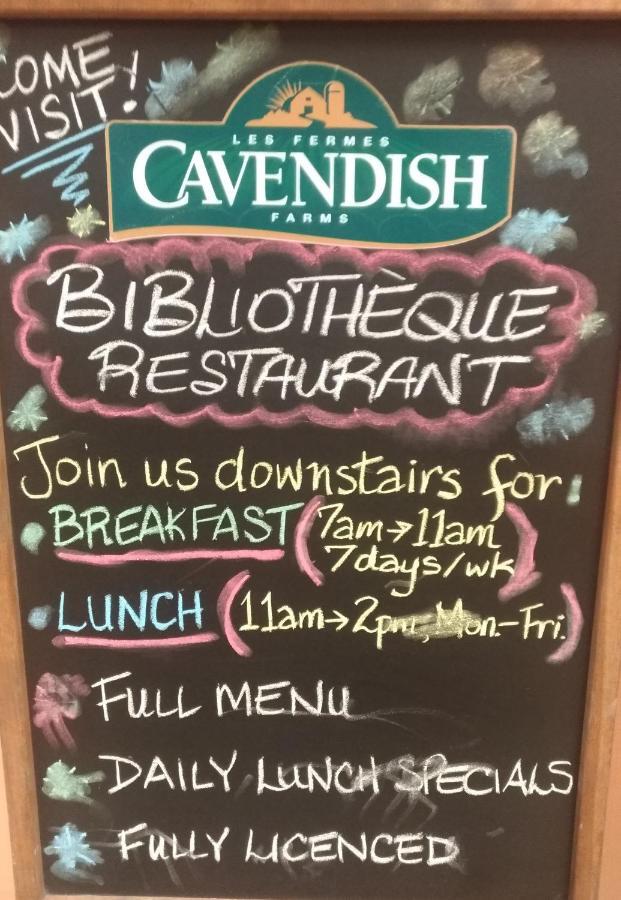 COME
VISIT!
LES FERMES
CAVENDISH
FARMS
BIBLIOTHÈQUE
RESTAURANT
Join us downstairs for:
• BREAKFAST (7am→11am
7days/wk)
• LUNCH (11am→2pm, Mon.-Fri.)
FULL MENU
DAILY LUNCH SPECIALS
FULLY LICENCED